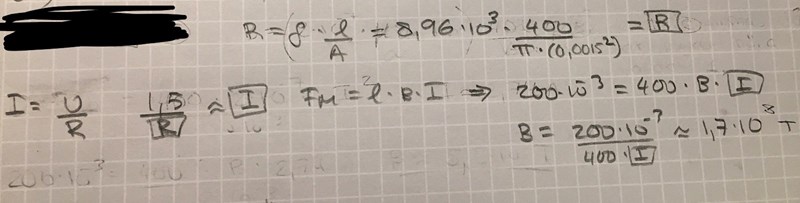 R = ρ · l/A = 8,96·10³ · 400/(π·(0,0015²)) = [R]
I = U/R 1,5/[R] ≈ [I] Fm = l · B · I ⇒ 200·10⁻³ = 400 · B · [I]
B = 200·10⁻³/(400·[I]) ≈ 1,7·10⁻³ T